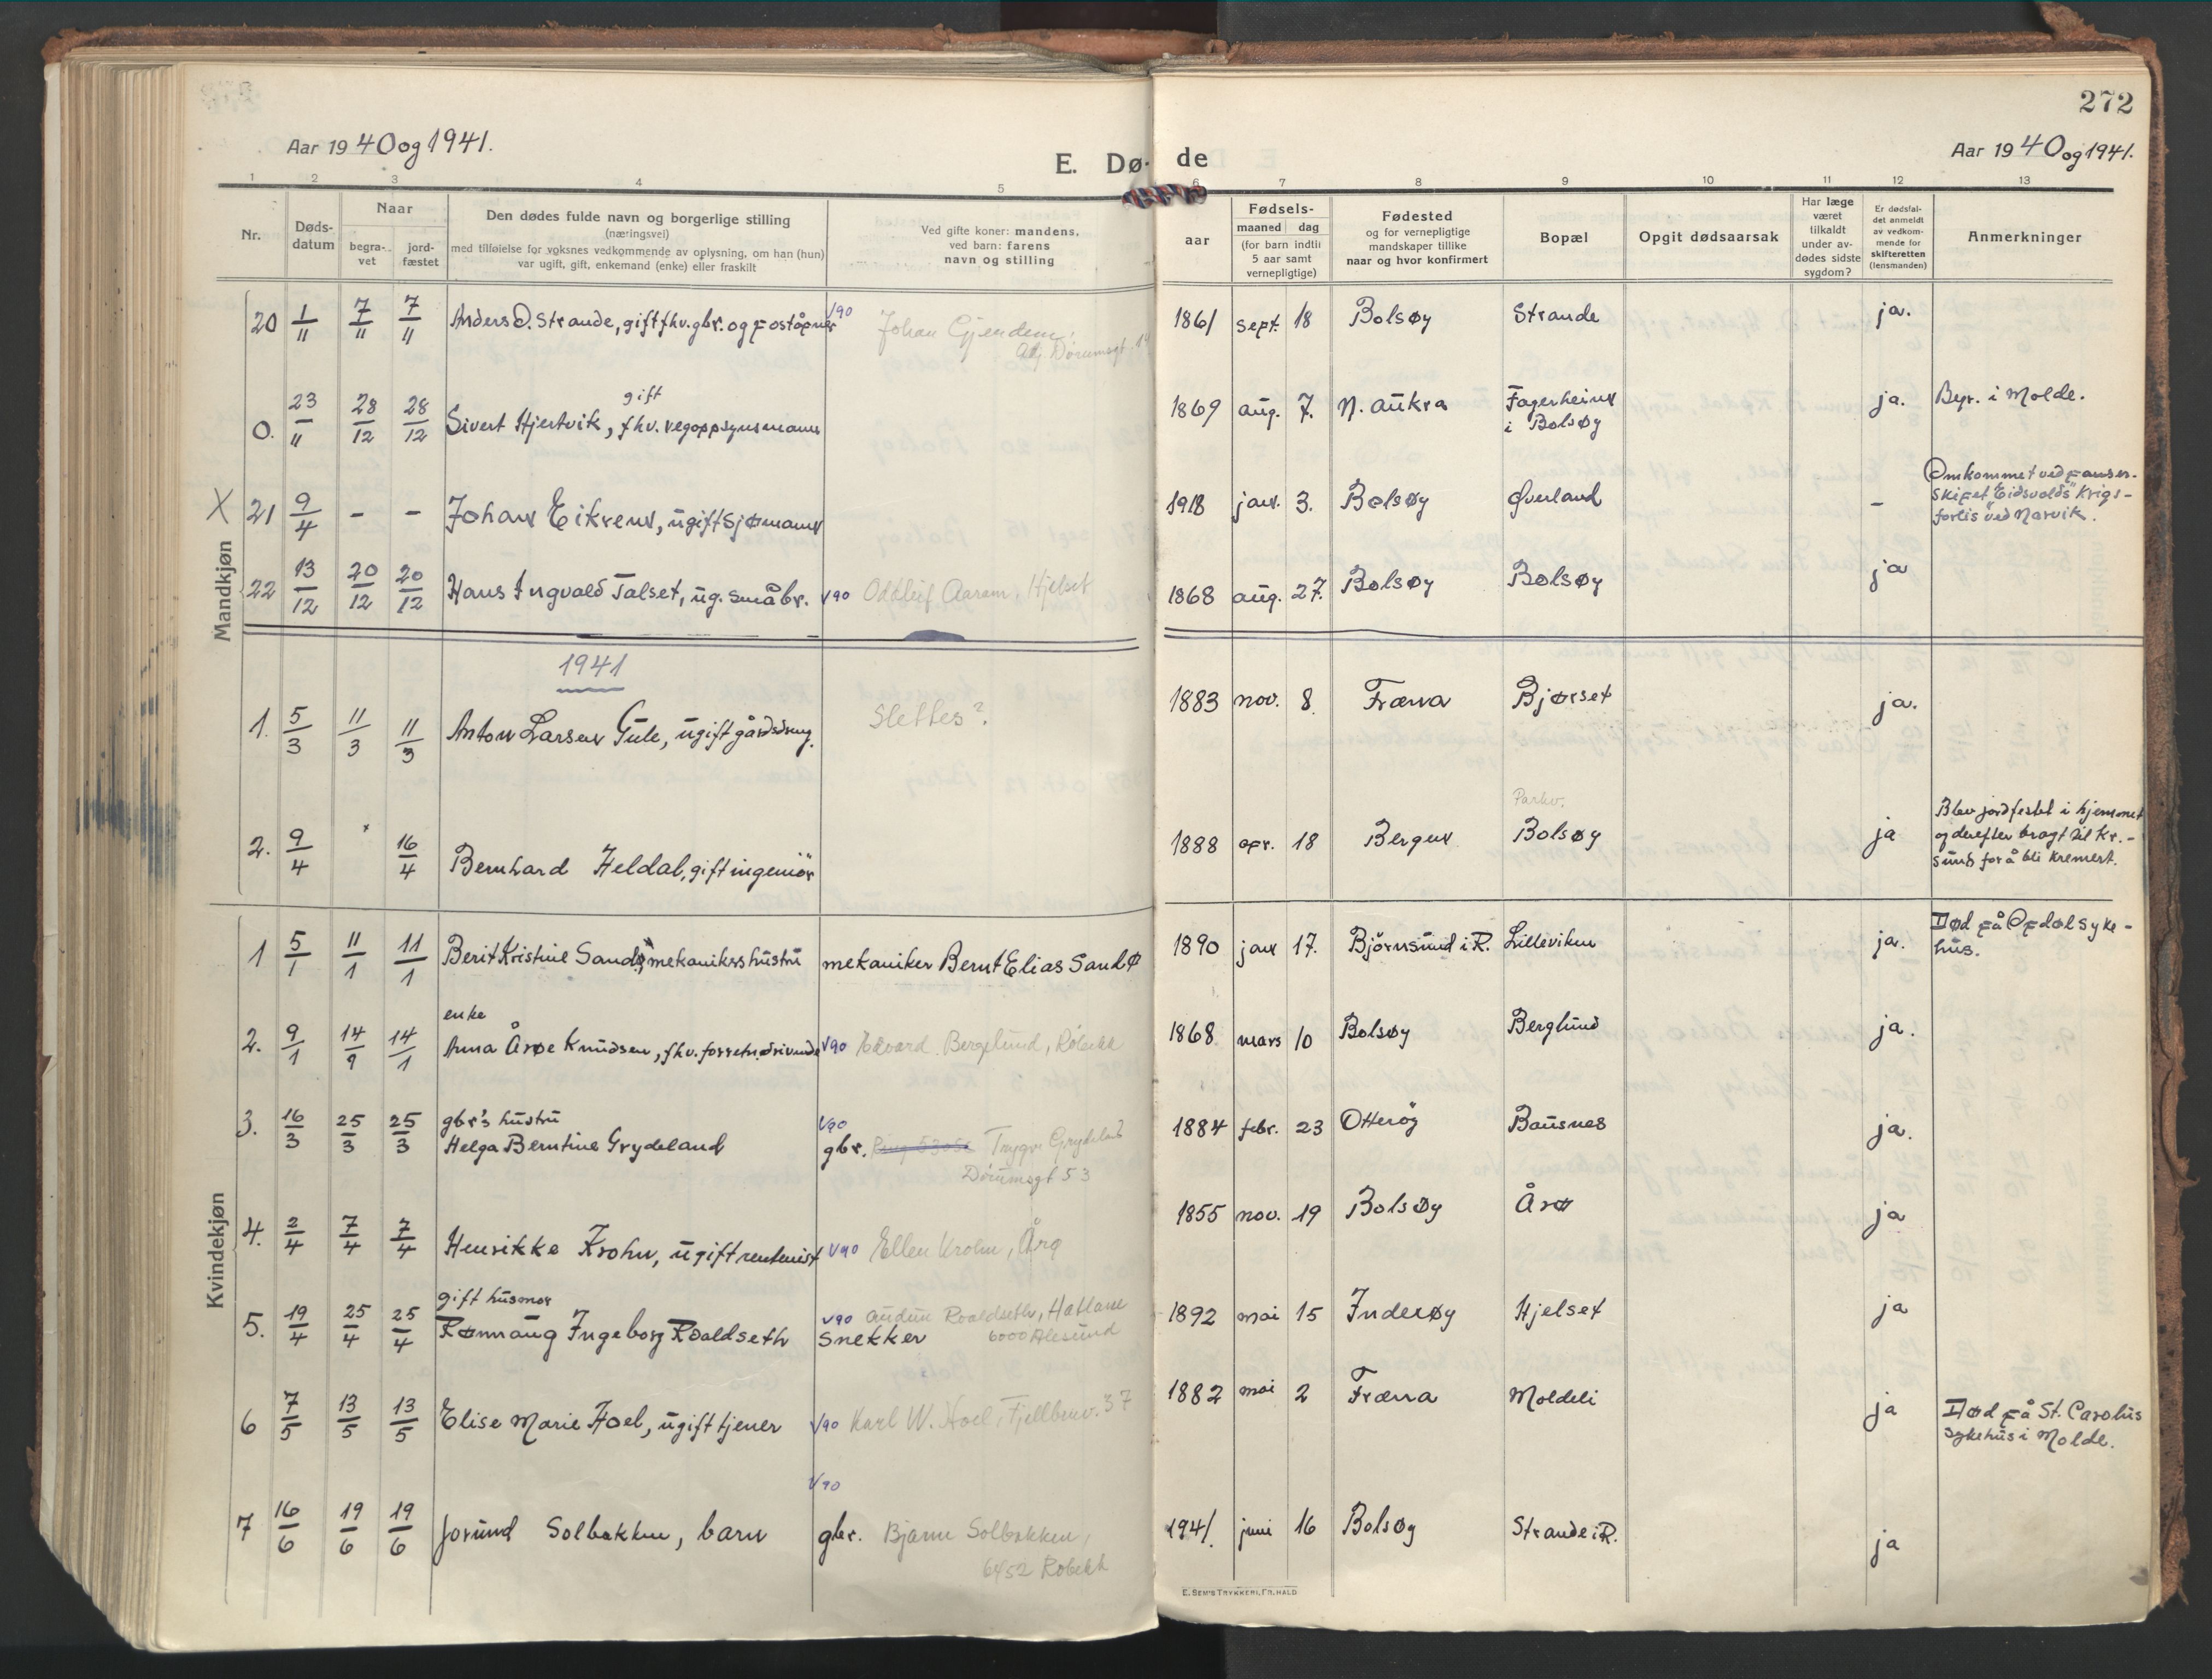 272
Aar 1940 og 1941.
E. Dø- de
Aar 1940 og 1941.
1 2 3 4 5 6 7 8 9 10 11 12 13
Nr.
Døds-
datum
Naar
begra-
vet
jord-
fæstet
Den dødes fulde navn og borgerlige stilling
(næringsvei)
med tilføielse for voksnes vedkommende av oplysning, om han (hun)
var ugift, gift, enkemand (enke) eller fraskilt
Ved gifte koner: mandens,
ved barn: farens
navn og stilling
Fødsels-
aar
maaned dag
(for barn indtil
5 aar samt
vernepligtige)
Fødested
og for vernepligtige
mandskaper tillike
naar og hvor konfirmert
Bopæl
Opgit dødsaarsak
Har læge
været
tilkaldt
under av-
dødes sidste
sygdom?
Er dødsfal-
det anmeldt
av vedkom-
mende for
skifteretten
(lensmanden)
Anmerkninger
Mandkjøn
20 1/11 7/11 7/11 Anders D. Strande, gift fhv. gbr. og poståpner V90 Johan Gjendem, 1861 sept. 18 Bolsøy Strande ja.
0. 23/11 28/12 28/12 Sivert Hjertvik, gift fhv. vegoppsynsmann 1869 aug. 7. N. Aukra Fagerheim ja. Begr. i Molde.
i Bolsøy
X 21 9/4 - - Johan Eikrem, ugift sjømann 1918 jan. 3. Bolsøy Øverland - Omkommet ved panser-
skipet "Eidsvolds" krigs-
forlis ved Narvik.
22 13/12 20/12 20/12 Hans Ingvald Talset, ug. småbr. V90 Oddleif Aaram, Hjelset 1868 aug. 27. Bolsøy Bolsøy ja
1941
1. 5/3 11/3 11/3 Anton Larsen Gule, ugift gårdsdreng. Slettes? 1883 nov. 8. Fræna Bjørset ja.
2. 9/4 16/4 Bernhard Heldal, gift ingeniör 1888 apr. 18 Bergen Parkv.
Bolsøy ja Blev jordfestet i hjemmet
og derefter bragt til Kr.-
sund for å bli kremert.
Kvindekjøn
1 5/1 11/1 11/1 Berit Kristine Sandø, mekanikers hustru mekaniker Bernt Elias Sandø 1890 jan 17. Björnsund i R. Lilleviken ja. Död på Opdøl syke-
hus.
enke
2. 9/1 14/9 14/1 Anna Årøe Knudsen, fhv. forretn.drivende V90 Edvard Berglund, Røbekk 1868 mars 10 Bolsøy Berglund ja.
3. 16/3 25/3 25/3 gbr's hustru
Helga Berntine Grydeland V90 gbr. Trygve Grydeland 1884 febr. 23 Otterøy Bausnes ja.
Dörumsgt 53
4. 2/4 7/4 7/4 Henrikke Krohn, ugift rentenist V90 Ellen Krohn, Årø 1855 nov. 19 Bolsøy Årø ja
gift husmor
5. 19/4 25/4 25/4 Rønnaug Ingeborg Roaldseth V90 Audun Roaldseth, Hatlane 1892 mai 15 Inderøy Hjelset ja
snekker 6000 Ålesund
6 7/5 13/5 13/5 Elise Marie Hoel, ugift tjener V90 Karl W. Hoel, Fjellbruv. 37 1882 mai 2 Fræna Moldeli ja Död på St. Carolus
sykehus i Molde.
V90
7 16/6 19/6 19/6 Jorunn Solbakken, barn gbr. Bjarne Solbakken, 1941. juni 16 Bolsøy Strande i R. ja
6452 Røbekk
E. SEM'S TRYKKERI, FR.HALD